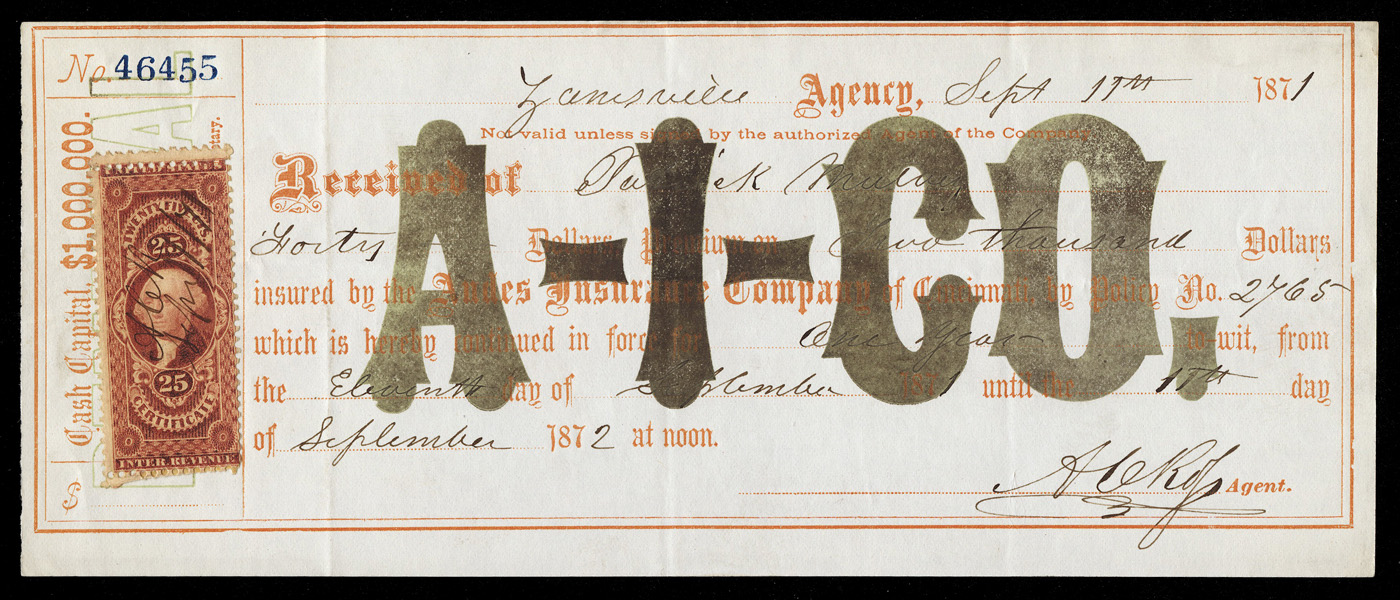 No 46455
Zanesville Agency, Sept 11th 1871
Not valid unless signed by the authorized Agent of the Company
Received of Patrick
Forty Dollars Premium on Two thousand Dollars
insured by the Andes Insurance Company of Cincinnati, by Policy No. 2765
which is hereby continued in force for One Year to-wit, from
the Eleventh day of September 1871 until the 11th day
of September 1872 at noon.
Agent.
A-I-CO.
Cash Capital, $1,000,000.
$
TWENTY FIVE CTS
25
25
CERTIFICATE
INTER REVENUE